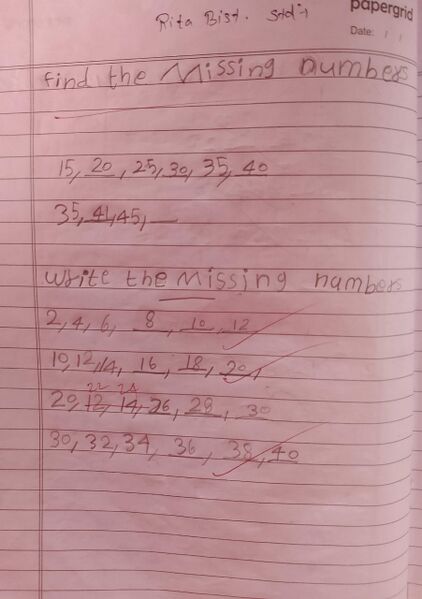 Rita Bist. Std:1
papergrid
Date: / /
find the Missing numbers
15, 20, 25, 30, 35, 40
35, 41, 45, __
write the Missing numbers
2, 4, 6, 8, 10, 12
10, 12, 14, 16, 18, 20,
22 24
20, 12, 14, 26, 28, 30
30, 32, 34, 36, 38, 40